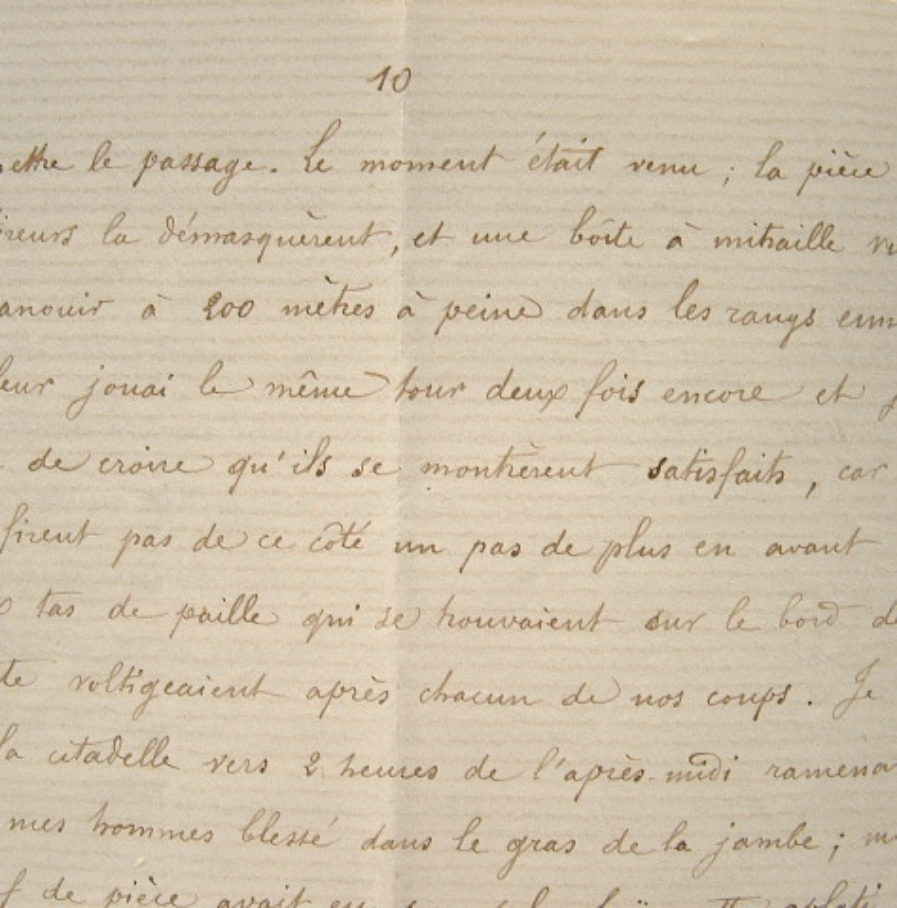 10
ettre le passage. Le moment était venu ; la pièce
ireurs la démasquèrent, et une boîte à mitraille
anouir à 200 mètres à peine dans les rangs enn
leur jouai le même tour deux fois encore et j
de croire qu'ils se montrèrent satisfaits, car
firent pas de ce côté un pas de plus en avant
tas de paille qui se trouvaient sur le bord d
te voltigeaient après chacun de nos coups. Je
la citadelle vers 2 heures de l'après-midi ramena
mes hommes blessé dans le gras de la jambe ; m
f de pièce avait eu